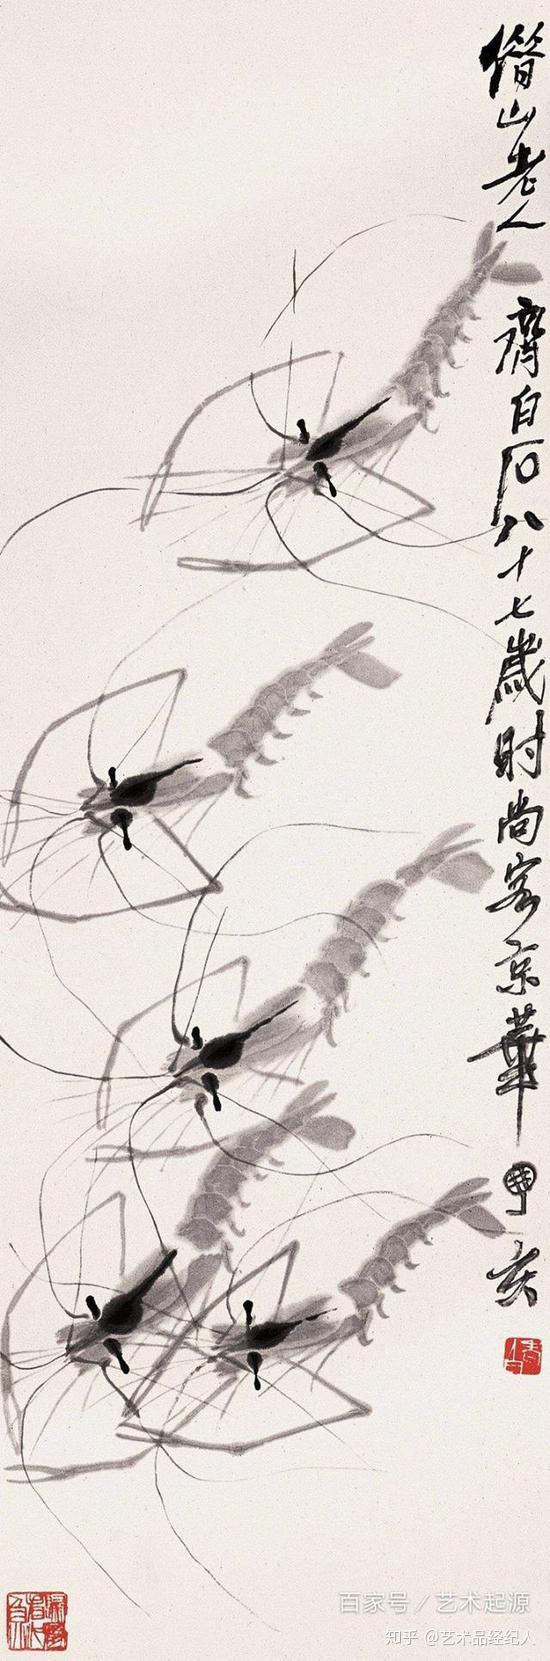 借山老人 齊白石八十七歲时尚客京華 丁亥
百家号／艺术起源
知乎 @艺术品经纪人